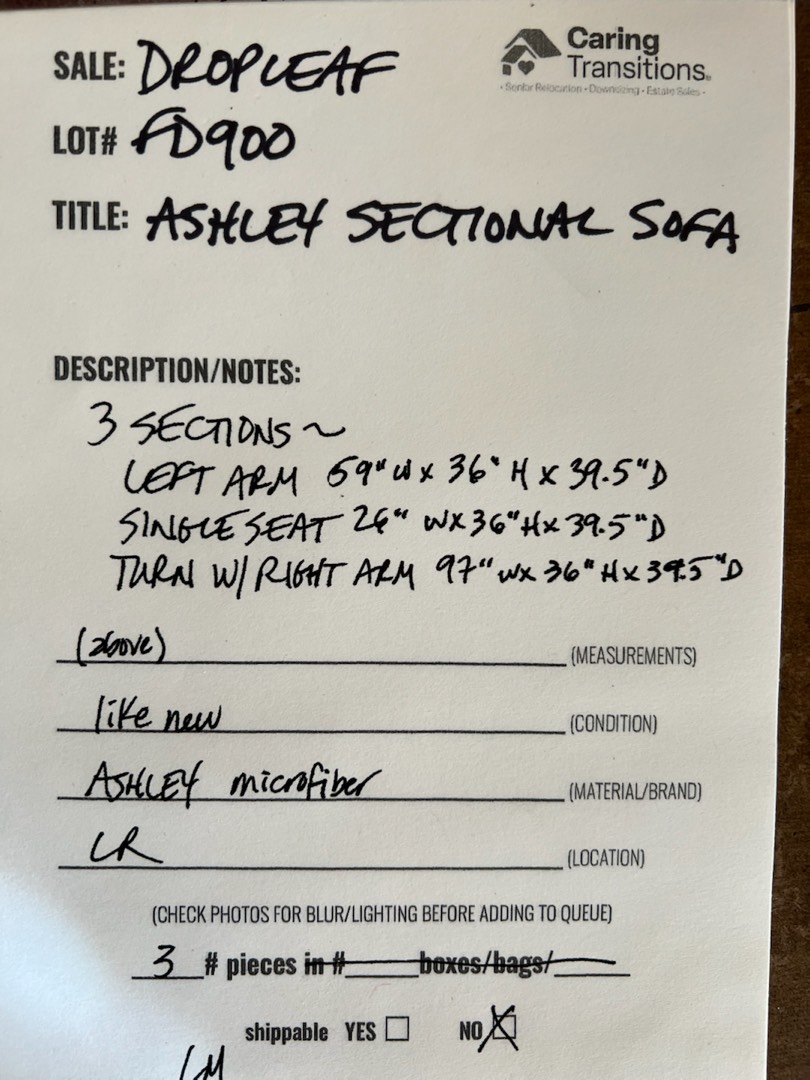 SALE: DROPLEAF
Caring
Transitions
• Senior Relocation • Downsizing • Estate Sales •
LOT# FD900
TITLE: ASHLEY SECTIONAL SOFA
DESCRIPTION/NOTES:
3 SECTIONS ~
LEFT ARM 69" W x 36" H x 39.5" D
SINGLE SEAT 26" W x 36" H x 39.5" D
TURN W/ RIGHT ARM 97" W x 36" H x 39.5" D
(above) (MEASUREMENTS)
like new (CONDITION)
ASHLEY microfiber (MATERIAL/BRAND)
LR (LOCATION)
(CHECK PHOTOS FOR BLUR/LIGHTING BEFORE ADDING TO QUEUE)
3 # pieces in # boxes/bags/
shippable YES NO X